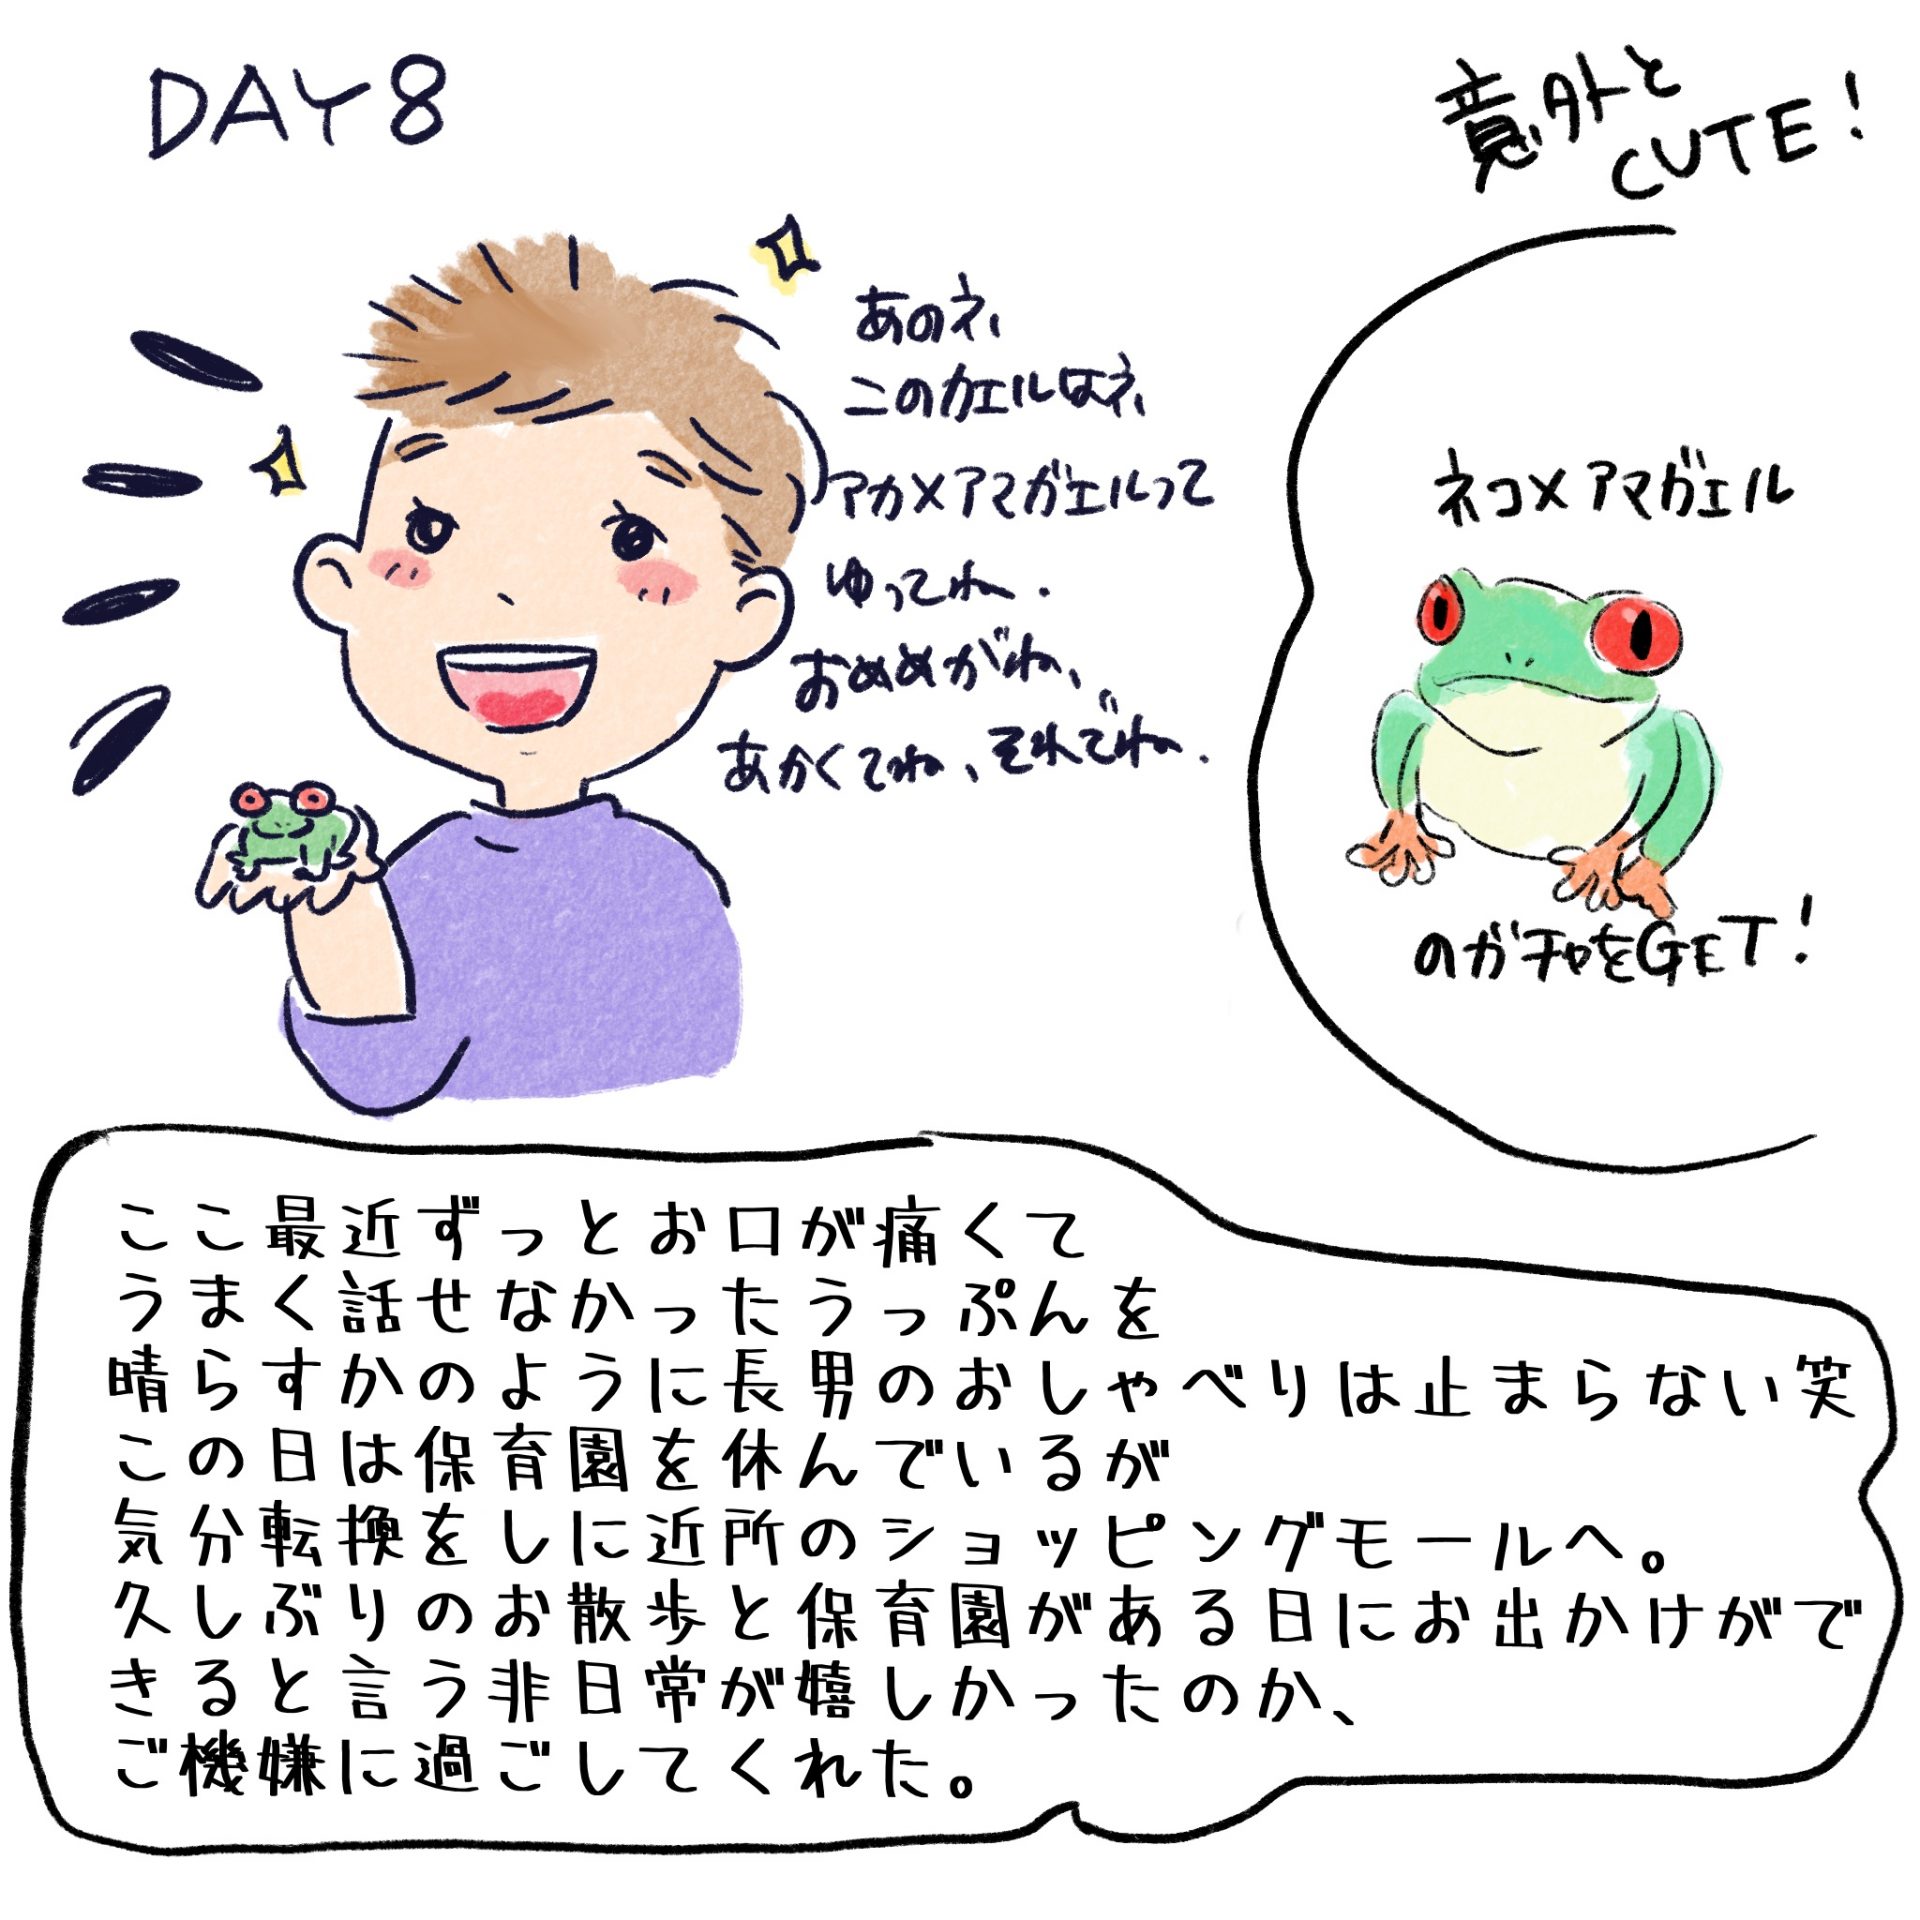 DAY8
意外と
CUTE!
あのネ、
このカエルはネ、
アカメアマガエルって
ゆってね.
おめめがね、
あかくてね、それでね.
ネコメアマガエル
のガチャをGET!
ここ最近ずっとお口が痛くて
うまく話せなかったうっぷんを
晴らすかのように長男のおしゃべりは止まらない笑
この日は保育園を休んでいるが
気分転換をしに近所のショッピングモールへ。
久しぶりのお散歩と保育園がある日にお出かけがで
きると言う非日常が嬉しかったのか、
ご機嫌に過ごしてくれた。